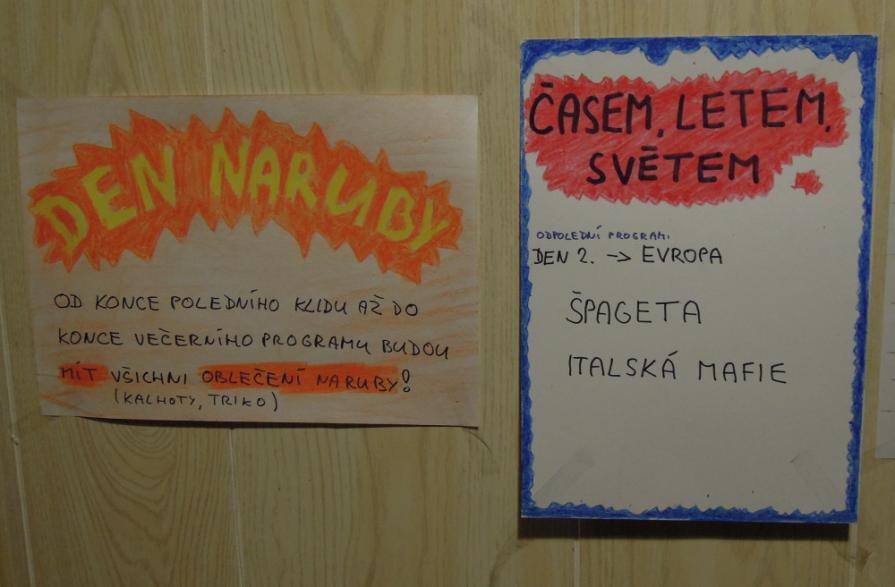 DEN NARUBY
OD KONCE POLEDNÍHO KLIDU AŽ DO
KONCE VEČERNÍHO PROGRAMU BUDOU
MÍT VŠICHNI OBLEČENÍ NARUBY!
(KALHOTY, TRIKO)
ČASEM, LETEM,
SVĚTEM
ODPOLEDNÍ PROGRAM:
DEN 2. -> EVROPA
ŠPAGETA
ITALSKÁ MAFIE